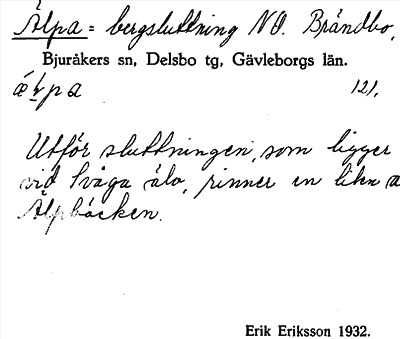 Älpa = bergsluttning NO. Brändbo,
Bjuråkers sn, Delsbo tg, Gävleborgs län.
121.
Utför sluttningen, som ligger
vid Svåga älv, rinner en liten
Älpbäcken.
Erik Eriksson 1932.